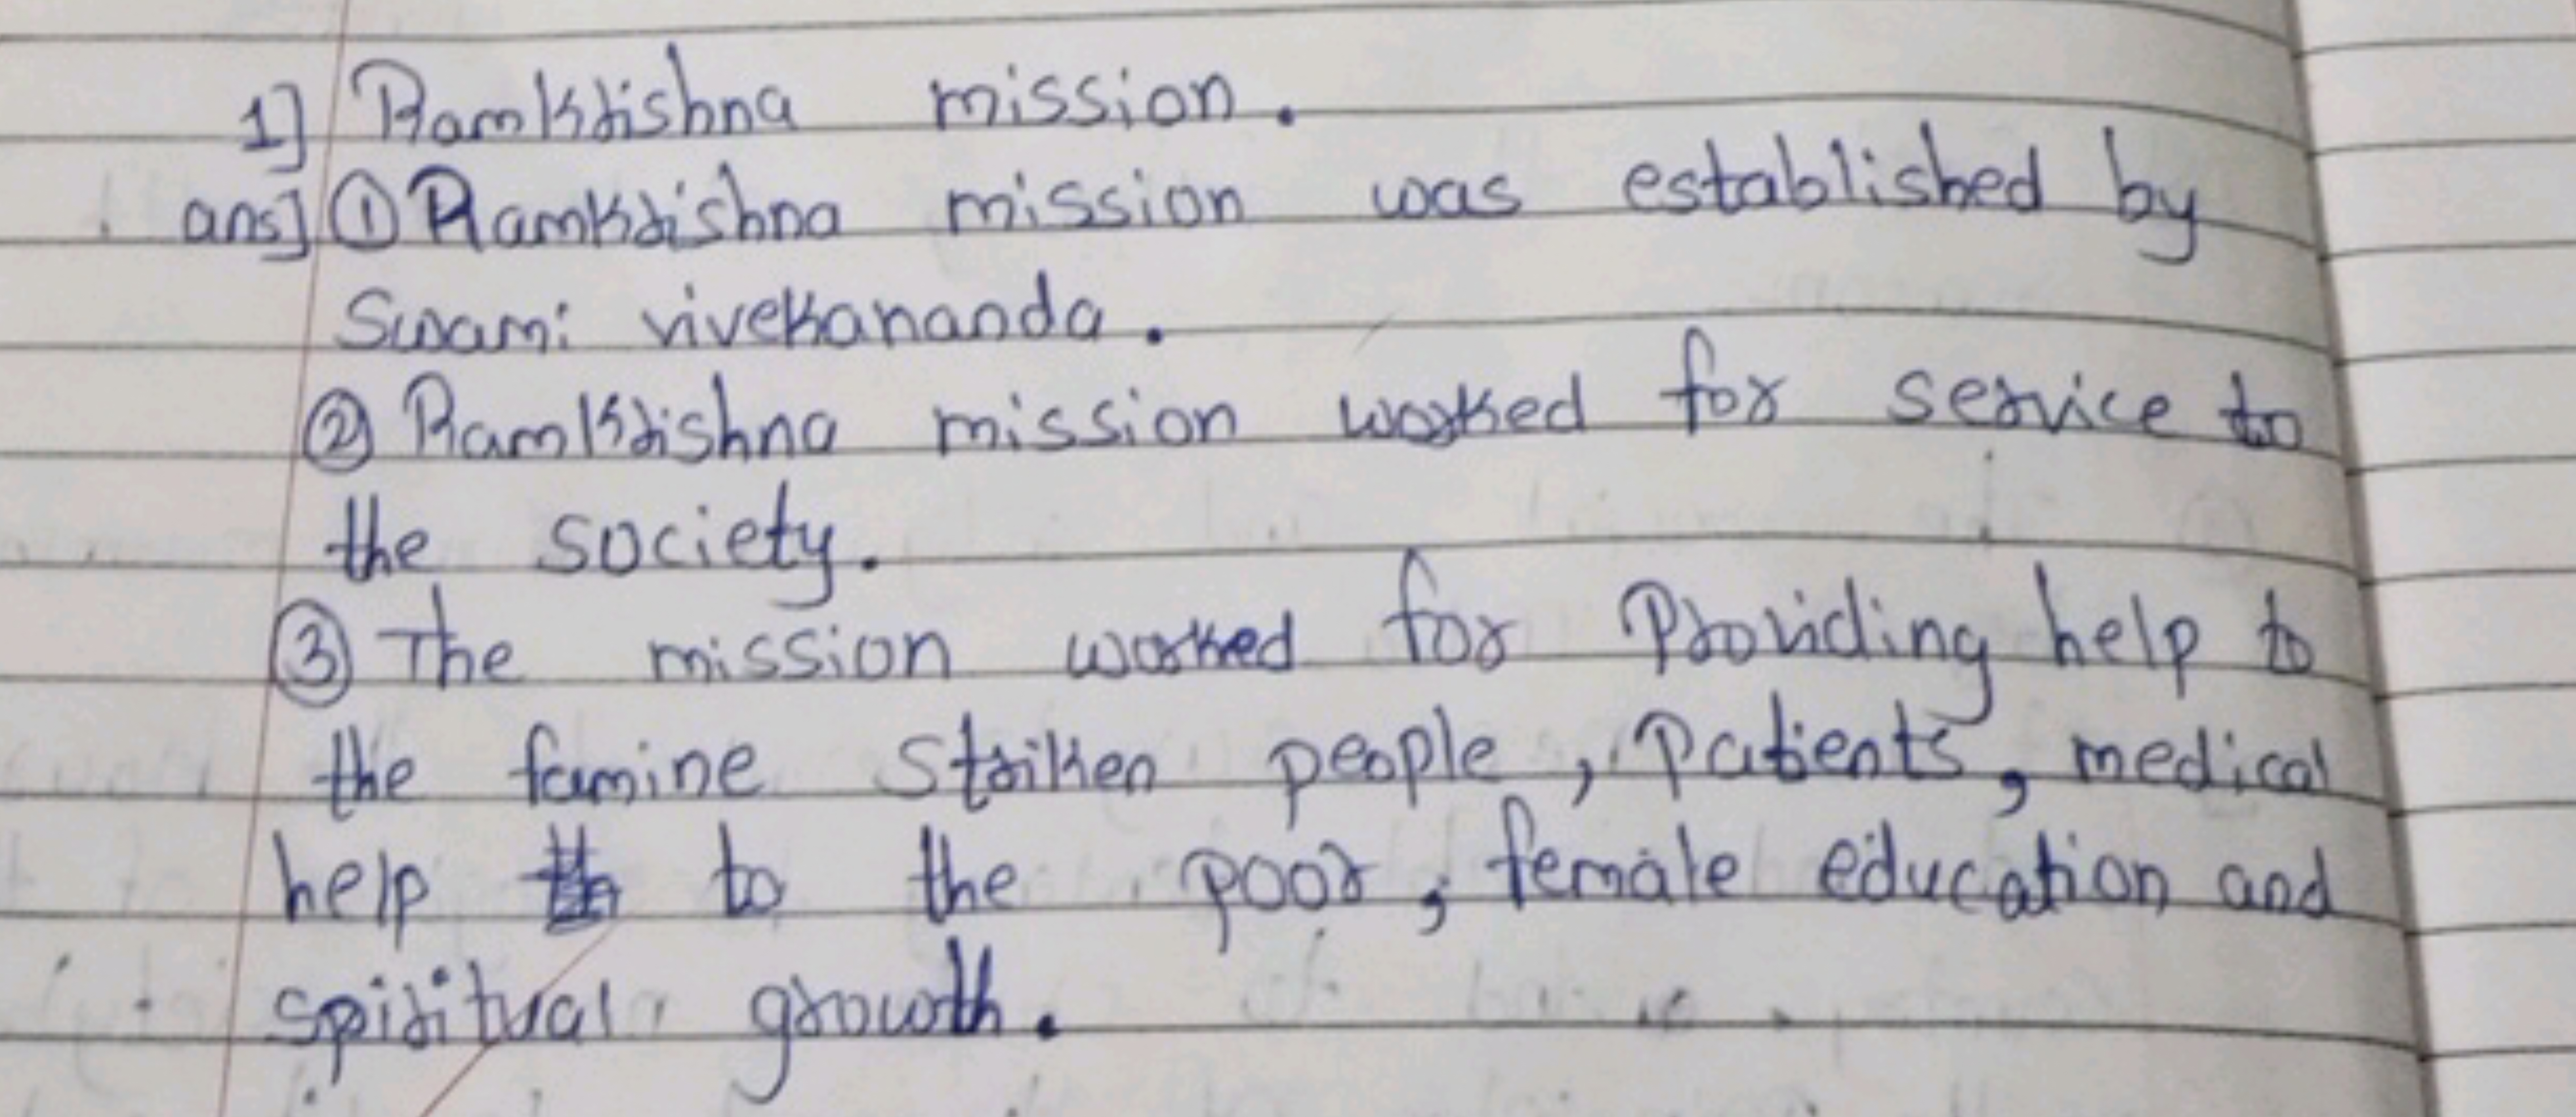 1] Ramkrishna mission.
ans] ① Ramkrishna mission was established by
Swami vivekananda.
② Ramkrishna mission worked for service to
the society.
③ The mission worked for Providing help to
the famine striken people, Patients, medical
help to the poor, female education and
spiritual growth.